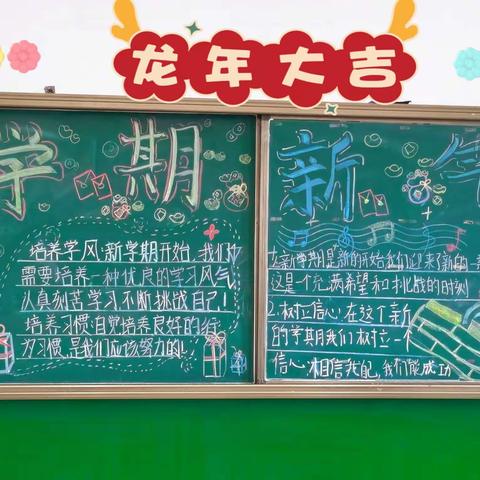 龙年大吉
学期 新年
培养学风:新学期开始,我们
需要培养一种优良的学习风气
认真刻苦学习不断挑战自己!
培养习惯:自觉培养良好的行
为习惯,是我们应该努力的!
1.新学期是新的开始我们迎来了新的
这是个充满希望和挑战的时刻
2.树立信心:在这个新
的学期我们树立一个
信心,相信我配,我们能成功